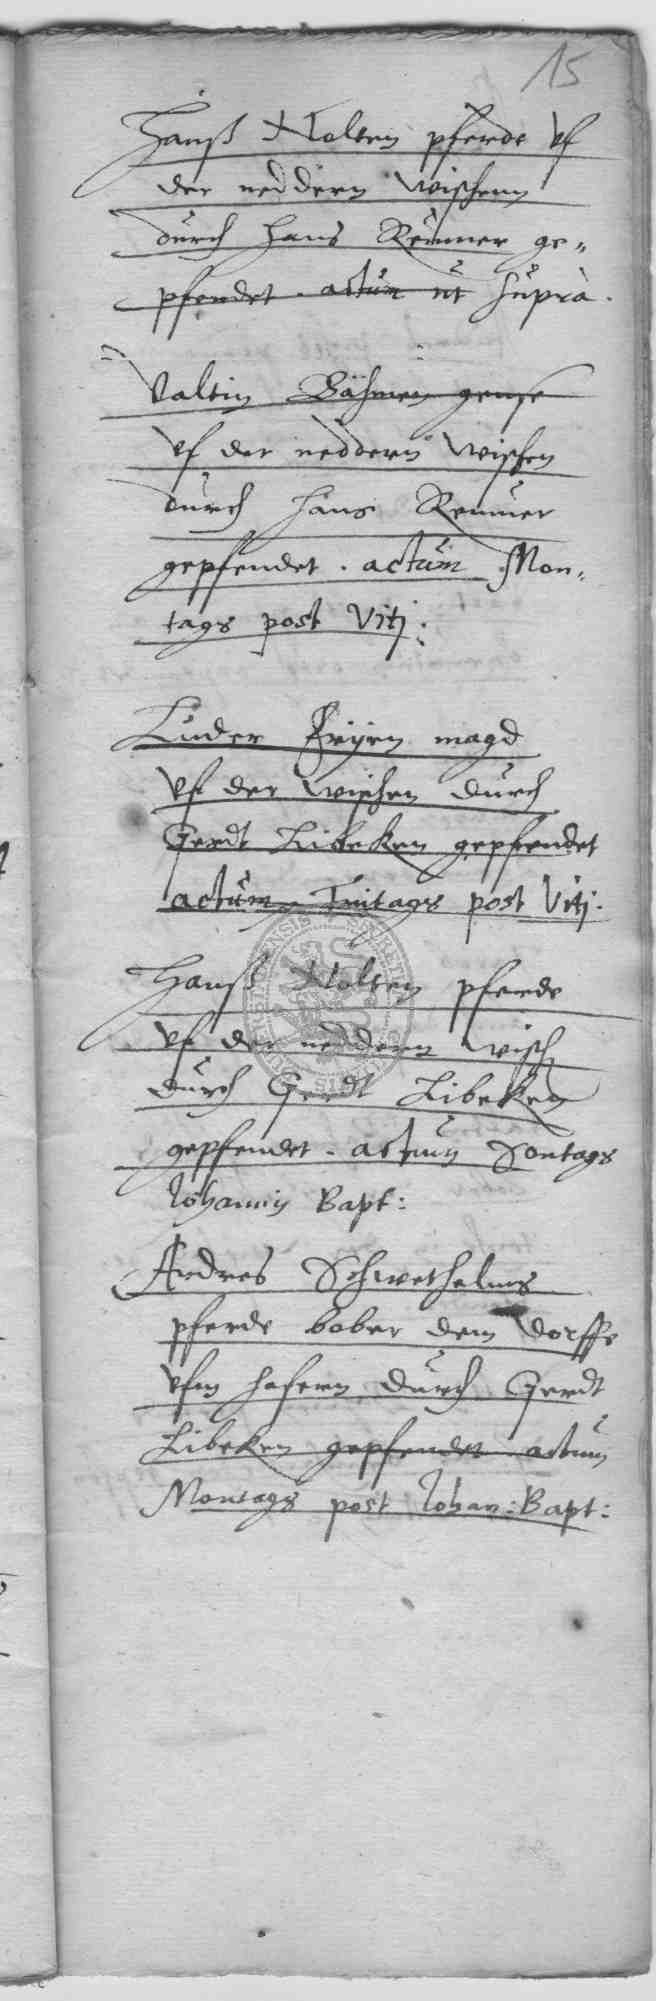 15
Hanß Nolten pferde vf
der neddern wischenn
durch Hans Remmer ge„
pfendet . actum ut supra .
Valtin Böhmen gense
vf der neddern wischen
durch Hans Remmer
gepfendet . actum Mon„
tags post Viti .
Luder magd
vf der wischen durch
Gerdt Libeken gepfendet
actum post Viti .
Hanß Nolten pferde
vf der neddern wisch
durch Gerdt Libeken
gepfendet . actum Sontags
Johannis Bapt :
Andres Schwethelms
pferde bober dem Dorffe
vfm hafern durch Gerdt
Libeken gepfendet actum
Montags post Johan : Bapt :